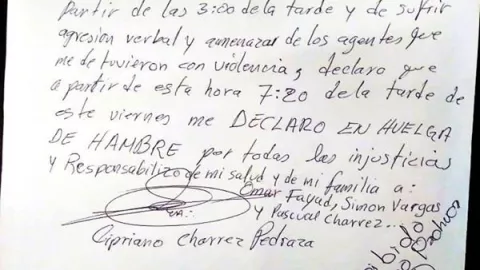 Partir de las 3:00 de la tarde y de sufrir
agresión verbal y amenazas de los agentes que
me detuvieron con violencia; declaro que
a partir de esta hora 7:20 de la tarde de
este viernes me DECLARO EN HUELGA
DE HAMBRE por todas las injusticias
y Responsabilizo de mi salud y de mi familia a:
Omar Fayad, Simon Vargas
y Pascual Charrez...
Cipriano Charrez Pedraza
Pachuca